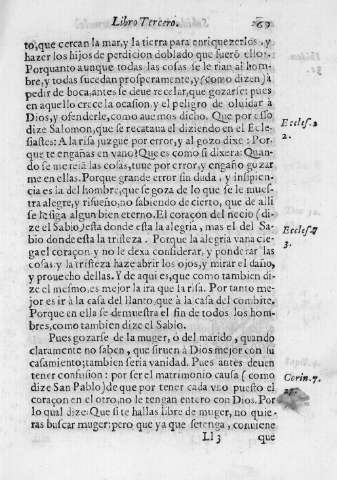 Libro Tercero. 269
to, que cercan la mar, y la tierra para enriquezerlos, y
hazer los hijos de perdicion doblado que fuerõ ellos.
Porquanto aunque todas las cosas se le rian al hom-
bre, y todas sucedan prosperamente, y (como dizen) à
pedir de boca, antes se deue recelar, que gozarse: pues
en aquello crece la ocasion, y el peligro de oluidar à
Dios, y ofenderle, como auemos dicho. Que por esso
dize Salomon, que se recataua el diziendo en el Ecle-
siastes: A la risa juzgue por error, y al gozo dixe: Por-
que te engañas en vano? Que es como si dixera: Quan-
do se me reia las cosas, tuue por error, y engaño gozar
me en ellas. Porque grande error sin duda, y insipien-
cia es la del hombre, que se goza de lo que se le mues-
tra alegre, y risueño, no sabiendo de cierto, que de alli
se le siga algun bien eterno. El coraçon del necio (di-
ze el Sabio) està donde està la alegria, mas el del Sa-
bio donde està la tristeza. Porque la alegria vana cie-
ga el coraçon y no le dexa considerar, y ponderar las
cosas, y la tristeza haze abrir los ojos, y mirar el daño,
y prouecho dellas. Y de aqui es, que como tambien di-
ze el mesmo, es mejor la ira que la risa. Por tanto me-
jor es ir à la casa del llanto que à la casa del combite.
Porque en ella se demuestra el fin de todos los hom-
bres, como tambien dize el Sabio.
Pues gozarse de la muger, o del marido, quando
claramente no saben, que siruen à Dios mejor con su
casamiento; tambien seria vanidad. Pues antes deuen
tener confusion: por ser el matrimonio causa (como
dize San Pablo) de que por tener cada vno puesto el
coraçon en el otro, no le tengan entero con Dios. Por
lo qual dize: Que si te hallas libre de muger, no quie-
ras buscar muger: pero que ya que se tenga, conuiene
Ll 3 que
Eccles. 2
2.
Eccles. 7
3.
Corin. 7.
27.